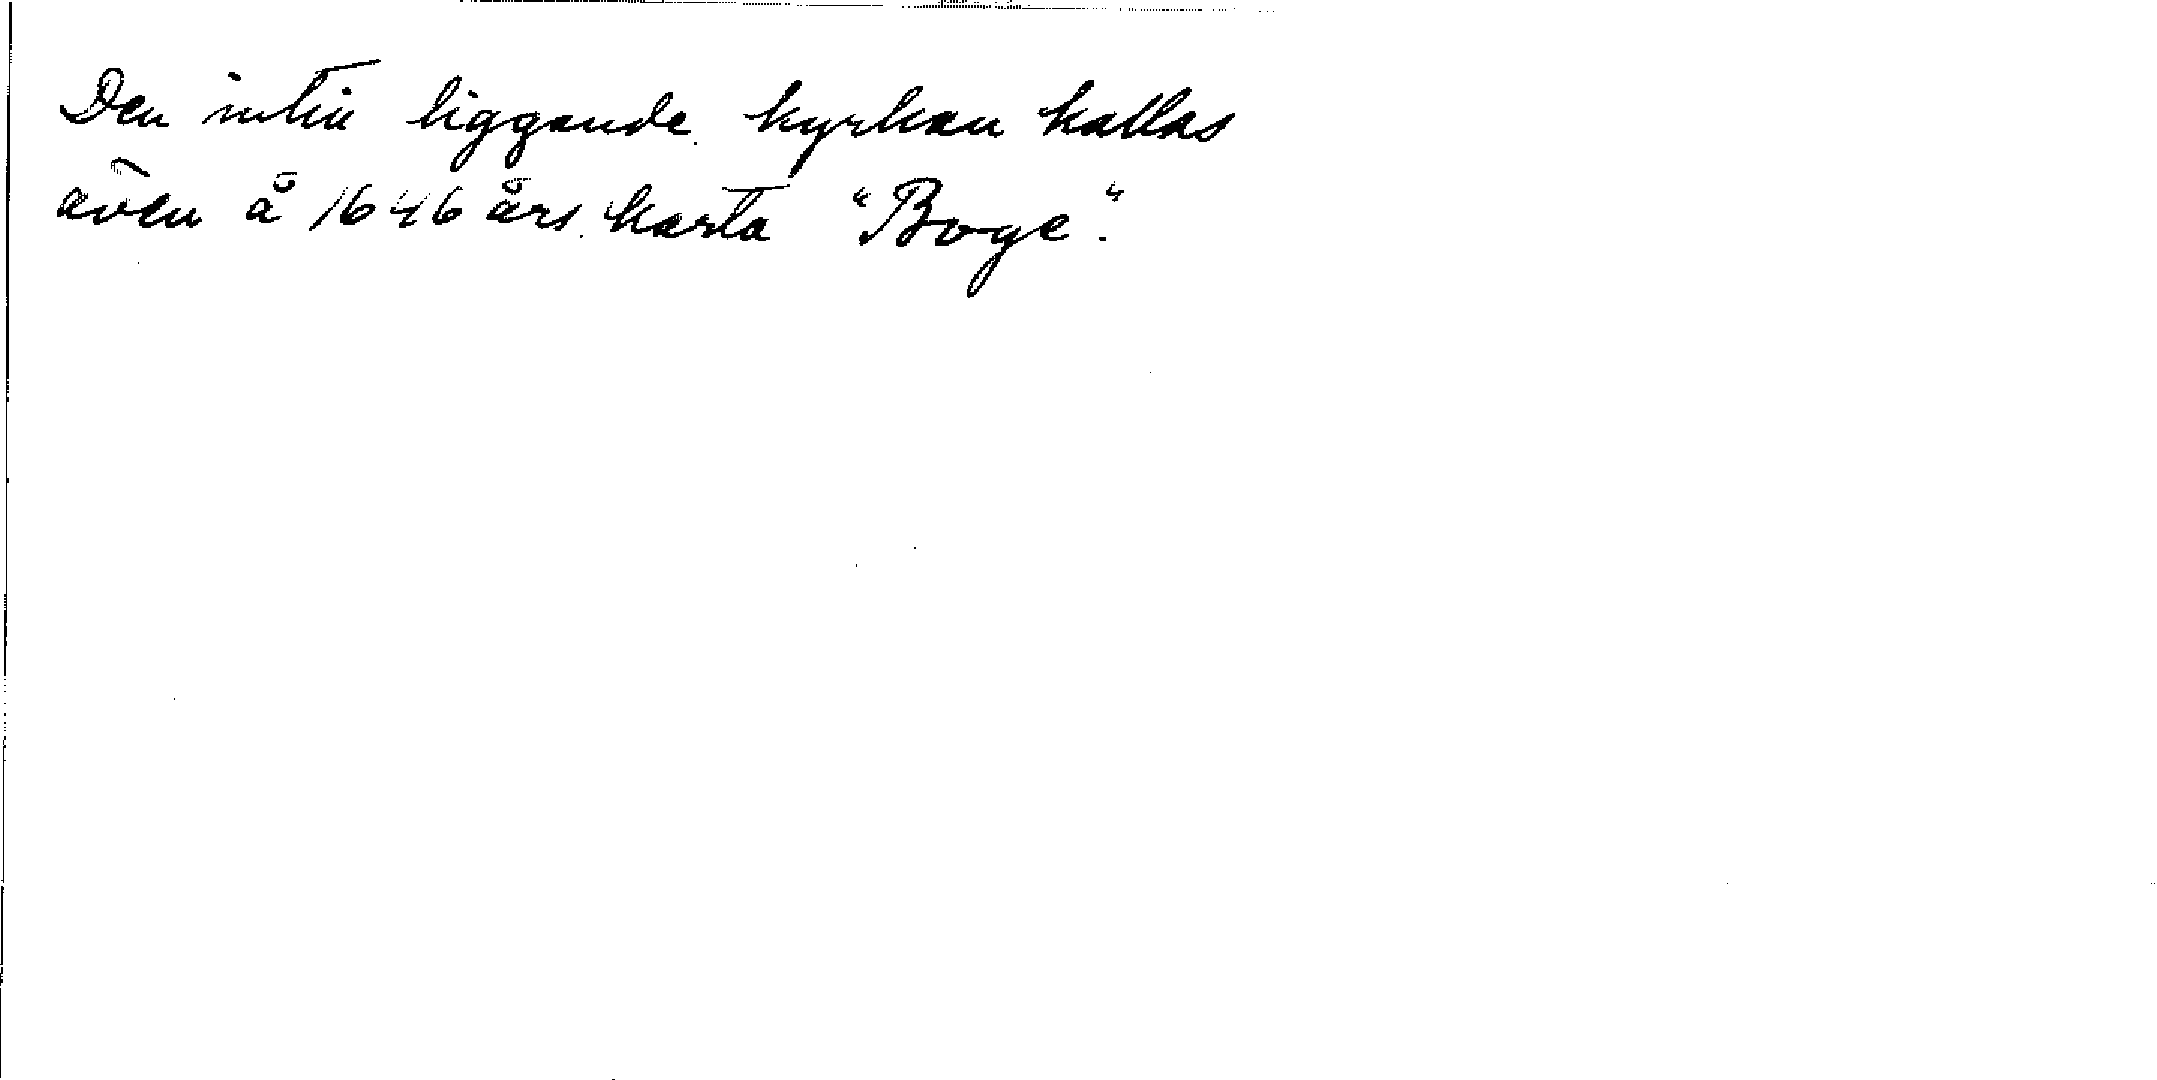 Den intill liggande kyrkan kallas
även å 1646 års karta "Boge".